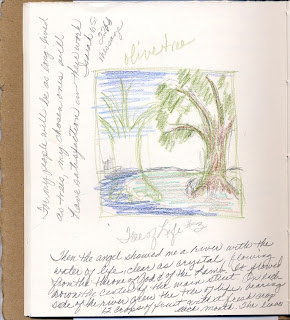 For my people will be as long lived
as trees, my chosen ones will
have satisfaction in their work
Isaiah 65:22
olive tree
Tree of Life
Then the angel showed me a river with the
water of life, clear as crystal, flowing
from the throne of God & of the Lamb. It flowed
down the center of the main street. On each
side of the river grew the tree of life, bearing
12 crops of fruit with a fresh crop
each month. The leaves